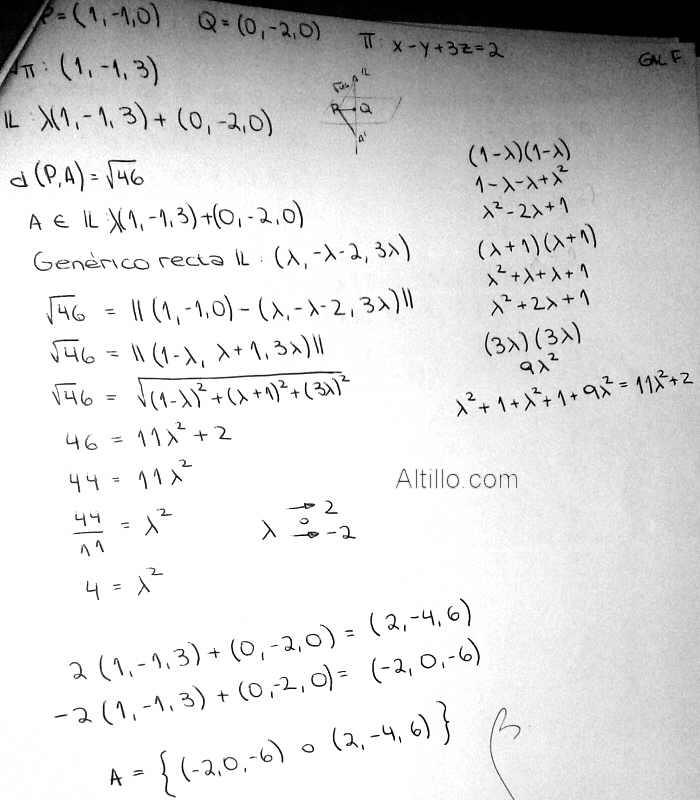 P = (1,-1,0)   Q = (0,-2,0)   π: x-y+3z=2
GAL F
Nπ: (1,-1,3)
√46 L
P Q
A'
L: λ(1,-1,3)+(0,-2,0)
d(P,A) = √46
A ∈ L: λ(1,-1,3)+(0,-2,0)
Genérico recta L: (λ,-λ-2,3λ)
√46 = ||(1,-1,0)-(λ,-λ-2,3λ)||
√46 = ||(1-λ, λ+1, 3λ)||
√46 = √(1-λ)²+(λ+1)²+(3λ)²
46 = 11λ²+2
44 = 11λ²
44/11 = λ²
4 = λ²
λ → 2
o
→ -2
(1-λ)(1-λ)
1-λ-λ+λ²
λ²-2λ+1
(λ+1)(λ+1)
λ²+λ+λ+1
λ²+2λ+1
(3λ)(3λ)
9λ²
λ²+1+λ²+1+9λ² = 11λ²+2
Altillo.com
2(1,-1,3)+(0,-2,0) = (2,-4,6)
-2(1,-1,3)+(0,-2,0) = (-2,0,-6)
A = {(-2,0,-6) o (2,-4,6)}